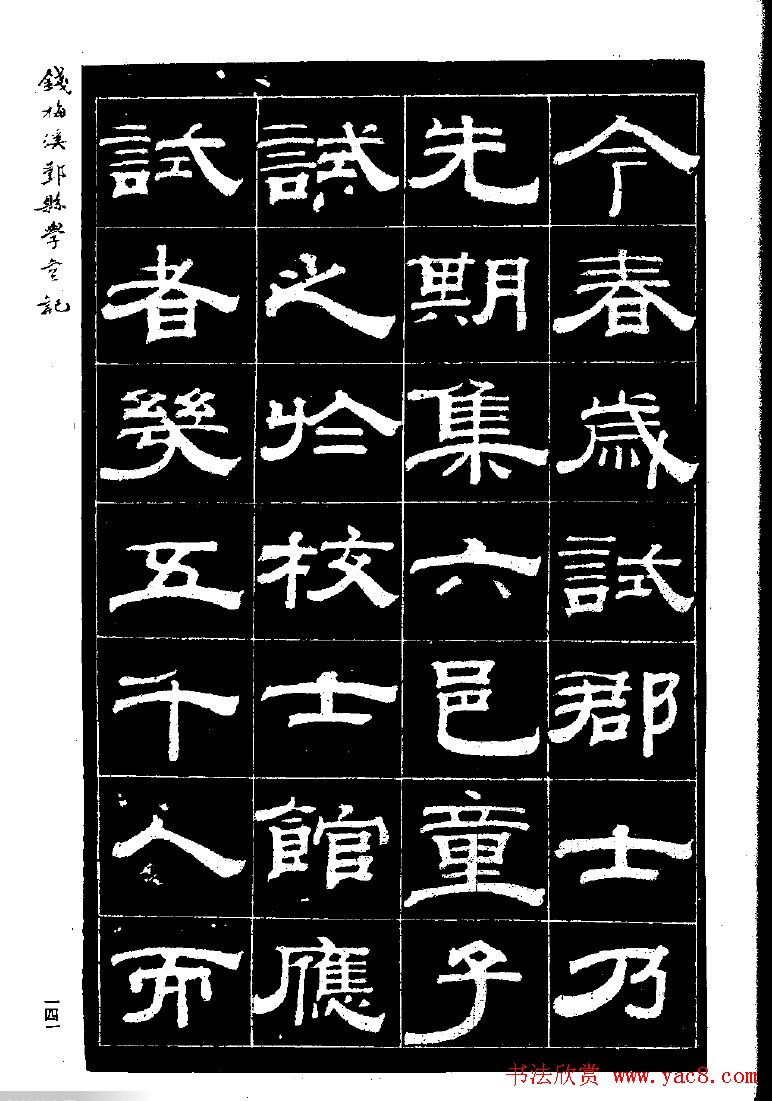 今春歲試郡士乃
先期集六邑童子
試之於校士館應
試者幾五千人而
錢梅溪鄞縣學宮記
一四一
书法欣赏 www.yac8.com